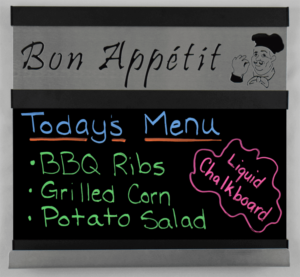 Bon Appétit
Today's Menu
• BBQ Ribs
• Grilled Corn
• Potato Salad
Liquid
Chalkboard